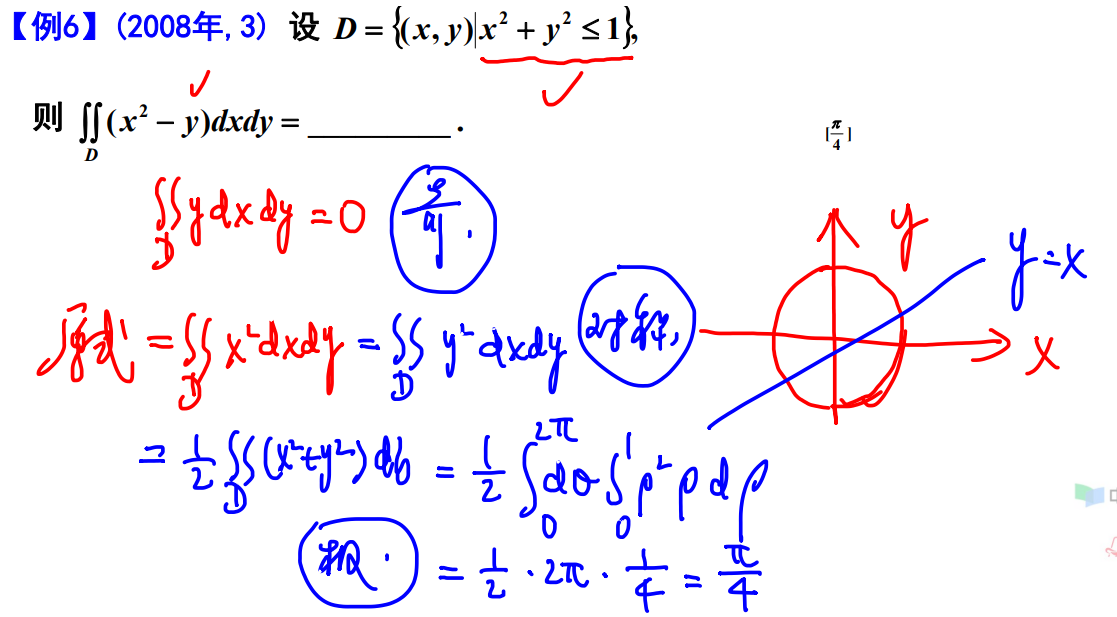 【例6】(2008年,3) 设 D = {(x, y)|x² + y² ≤ 1},
则 ∬_D (x² − y)dxdy = ________ .
[π/4]
∬_D y dx dy = 0
y
y = x
原式 = ∬_D x² dx dy = ∬_D y² dx dy
x
= 1/2 ∬_D (x² + y²) dσ = 1/2 ∫_0^{2π} dθ ∫_0^1 ρ² ρ dρ
极.
= 1/2 · 2π · 1/4 = π/4